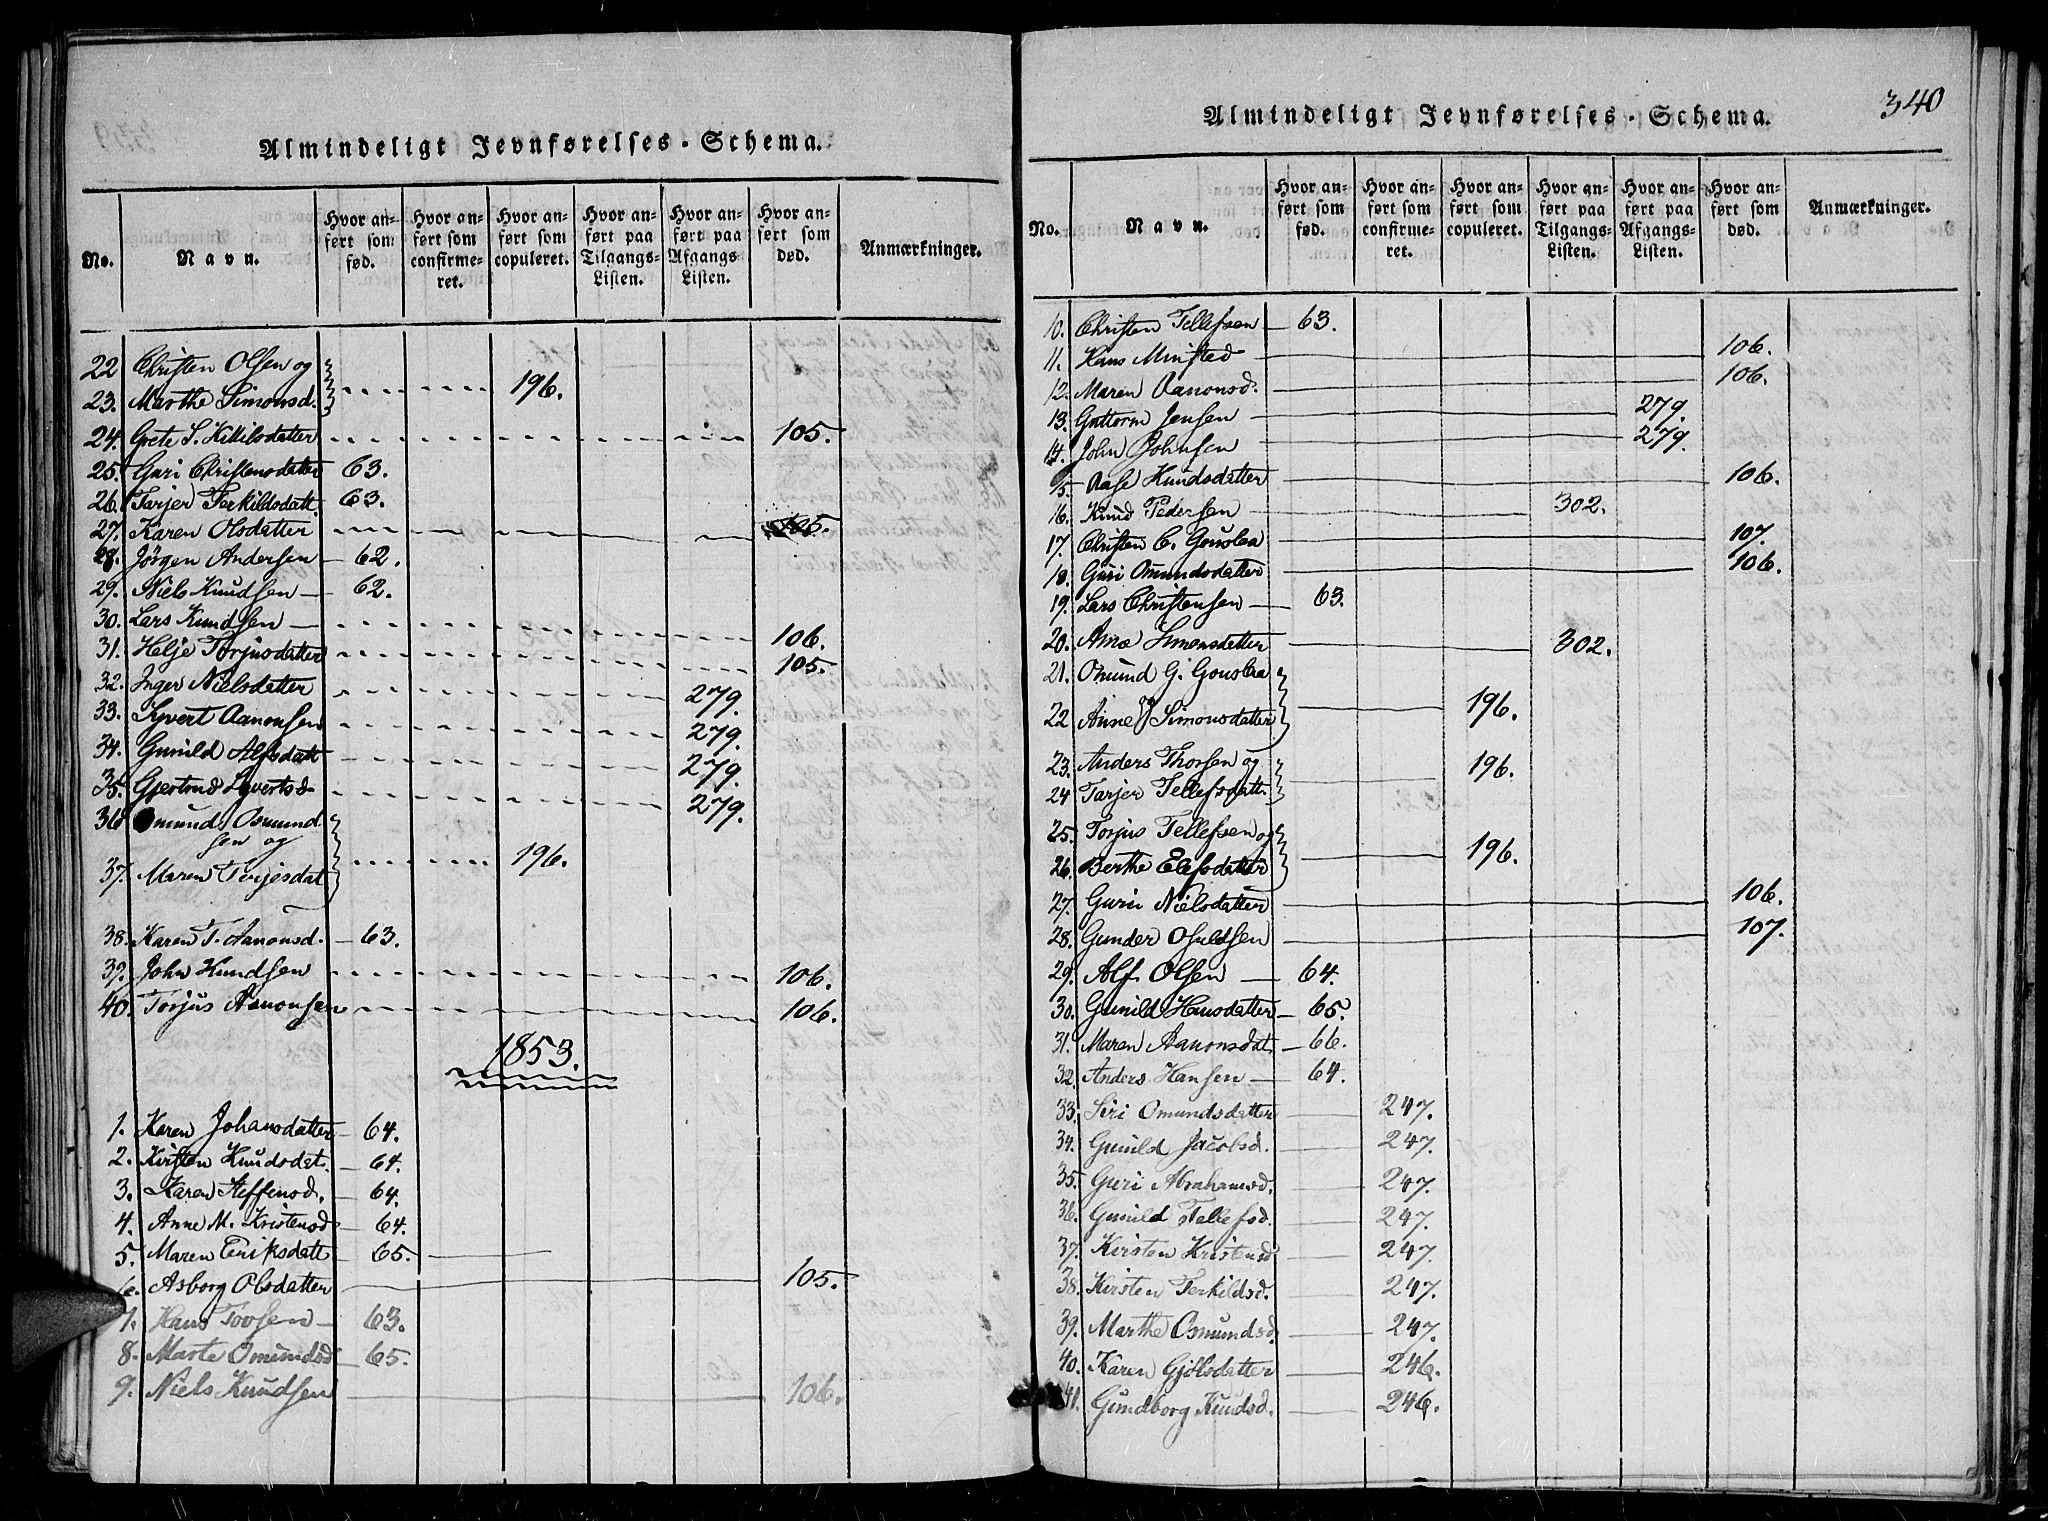 Almindeligt Jevnførelses-Schema.
No. Navn. Hvor anført som fød. Hvor anført som confirmeret. Hvor anført som copuleret. Hvor anført paa Tilgangs-Listen. Hvor anført paa Afgangs-Listen. Hvor anført som død. Anmærkninger.
22 Christen Olsen og
23. Marthe Simonsd. 196.
24. Grete S. Kittilsdatter 105.
25. Guri Christensdatter 63.
26. Tarjer Terkildsdatt. 63.
27. Karen Olsdatter 105.
28. Jörgen Andersen 62.
29. Niels Knudsen 62.
30. Lars Knudsen 106.
31. Helje Torjusdatter 105.
32. Inger Nielsdatter 279.
33. Syvert Aanonsen 279.
34. Gunild Alfsdatt 279.
35. Gjertrud Syvertsd 279.
36 Omund Osmund
sen og
37. Maren Terjesdat 196.
38. Karen T. Aanonsd. 63.
39. John Knudsen 106.
40. Torjus Aanonsen 106.
1853.
1. Karen Johansdatter 64.
2. Kirsten Knudsdat. 64.
3. Karen Steffensd. 64.
4. Anne M. Kristensd 64.
5. Maren Eriksdatt 65.
6. Asborg Olsdatter 105.
7. Hans Tovsen 63.
8. Marte Omundsd 65.
9. Niels Knudsen 106.
340
Almindeligt Jevnførelses-Schema.
No. Navn. Hvor anført som fød. Hvor anført som confirmeret. Hvor anført som copuleret. Hvor anført paa Tilgangs-Listen. Hvor anført paa Afgangs-Listen. Hvor anført som død. Anmærkninger.
10. Christen Tellefsen 63.
11. Hans Minsted 106.
12. Maren Aanonsd. 106.
13. Guttorm Jensen 279.
14. John Johnsen 279.
15. Aase Knudsdatter 106.
16. Knud Pedersen 302.
17. Christen C. Gouslaa 107.
18. Guri Omundsdatter 106.
19. Lars Christensen 63.
20. Anne Simonsdatter 302.
21. Omund G. Gouslaa
22. Anne Simonsdatter og 196.
23. Anders Thorsen og
24 Tarjer Tellefsdatt. 196.
25. Torjus Tellefsen og
26. Berthe Elefsdatter 196.
27. Guri Nielsdatter 106.
28. Gunder Osuldsen 107.
29. Alf Olsen 64.
30. Gunild Hansdatter 65.
31. Maren Aanonsdat. 66.
32. Anders Hansen 64.
33. Siri Omundsdatter 247.
34. Gunild Jacobsd. 247.
35. Guri Abrahamsd. 247.
36. Gunild Tellefsd. 247.
37. Kirsten Kristensd 247.
38. Kirsten Terkildsd. 247.
39. Marthe Osmundsd. 247.
40. Karen Gjölsdatter 246.
41. Gundborg Knudsd. 246.